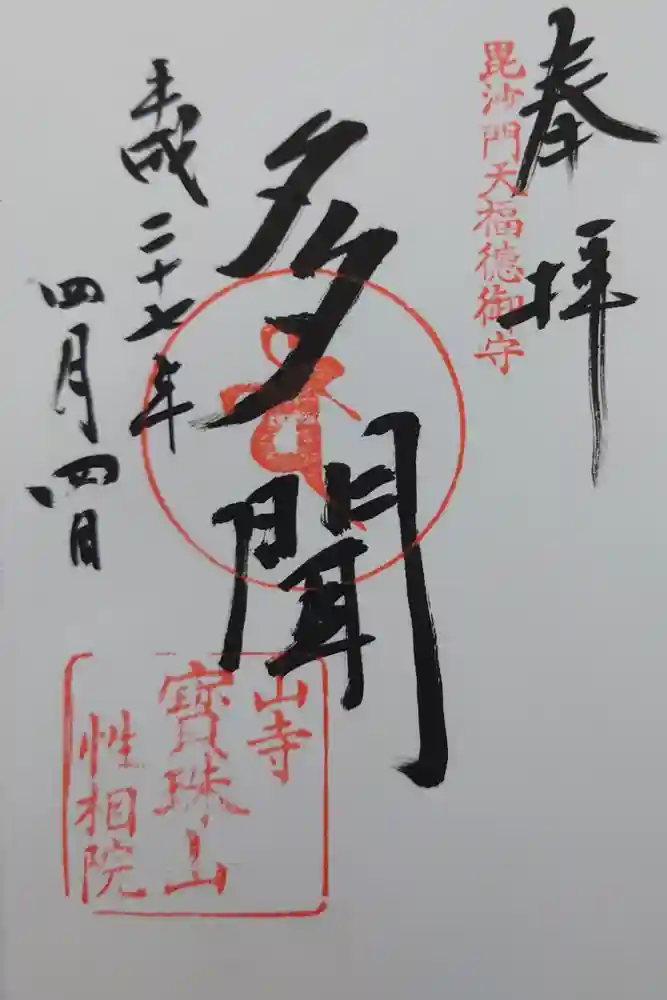 奉拝
毘沙門天福徳御守
多聞
平成二十七年
四月四日
山寺
寳珠山
性相院